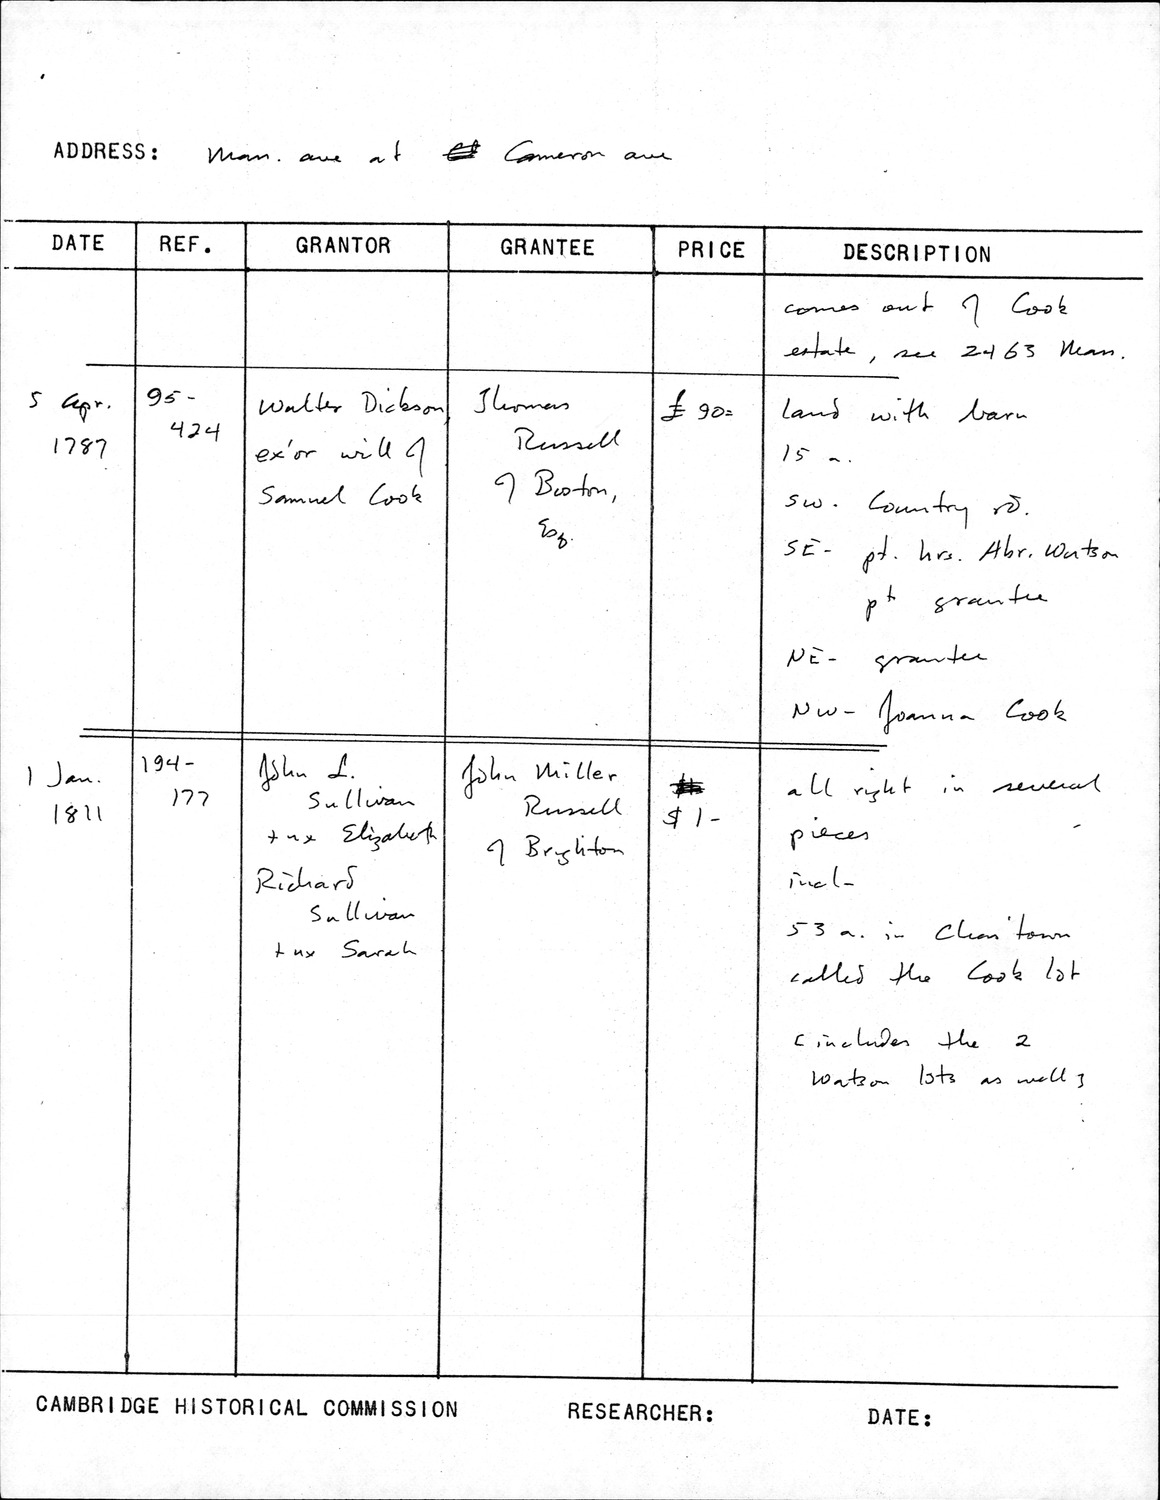 ADDRESS: Mass. ave at Cameron ave
DATE REF. GRANTOR GRANTEE PRICE DESCRIPTION
comes out of Cook
estate, see 2463 Mass.
5 Apr.
1787
95-
424
Walter Dickson
ex'or will of
Samuel Cook
Thomas
Russell
of Boston,
Esq.
£ 90=
land with barn
15 a.
SW. Country rd.
SE- pt. hrs. Abr. Watson
pt grantee
NE- grantee
NW- Joanna Cook
1 Jan.
1811
194-
177
John L.
Sullivan
+ ux Elizabeth
Richard
Sullivan
+ ux Sarah
John Miller
Russell
of Brighton
$ 1-
all right in several
pieces
incl-
53 a. in Chas'town
called the Cook lot
[includes the 2
Watson lots as well]
CAMBRIDGE HISTORICAL COMMISSION RESEARCHER: DATE: